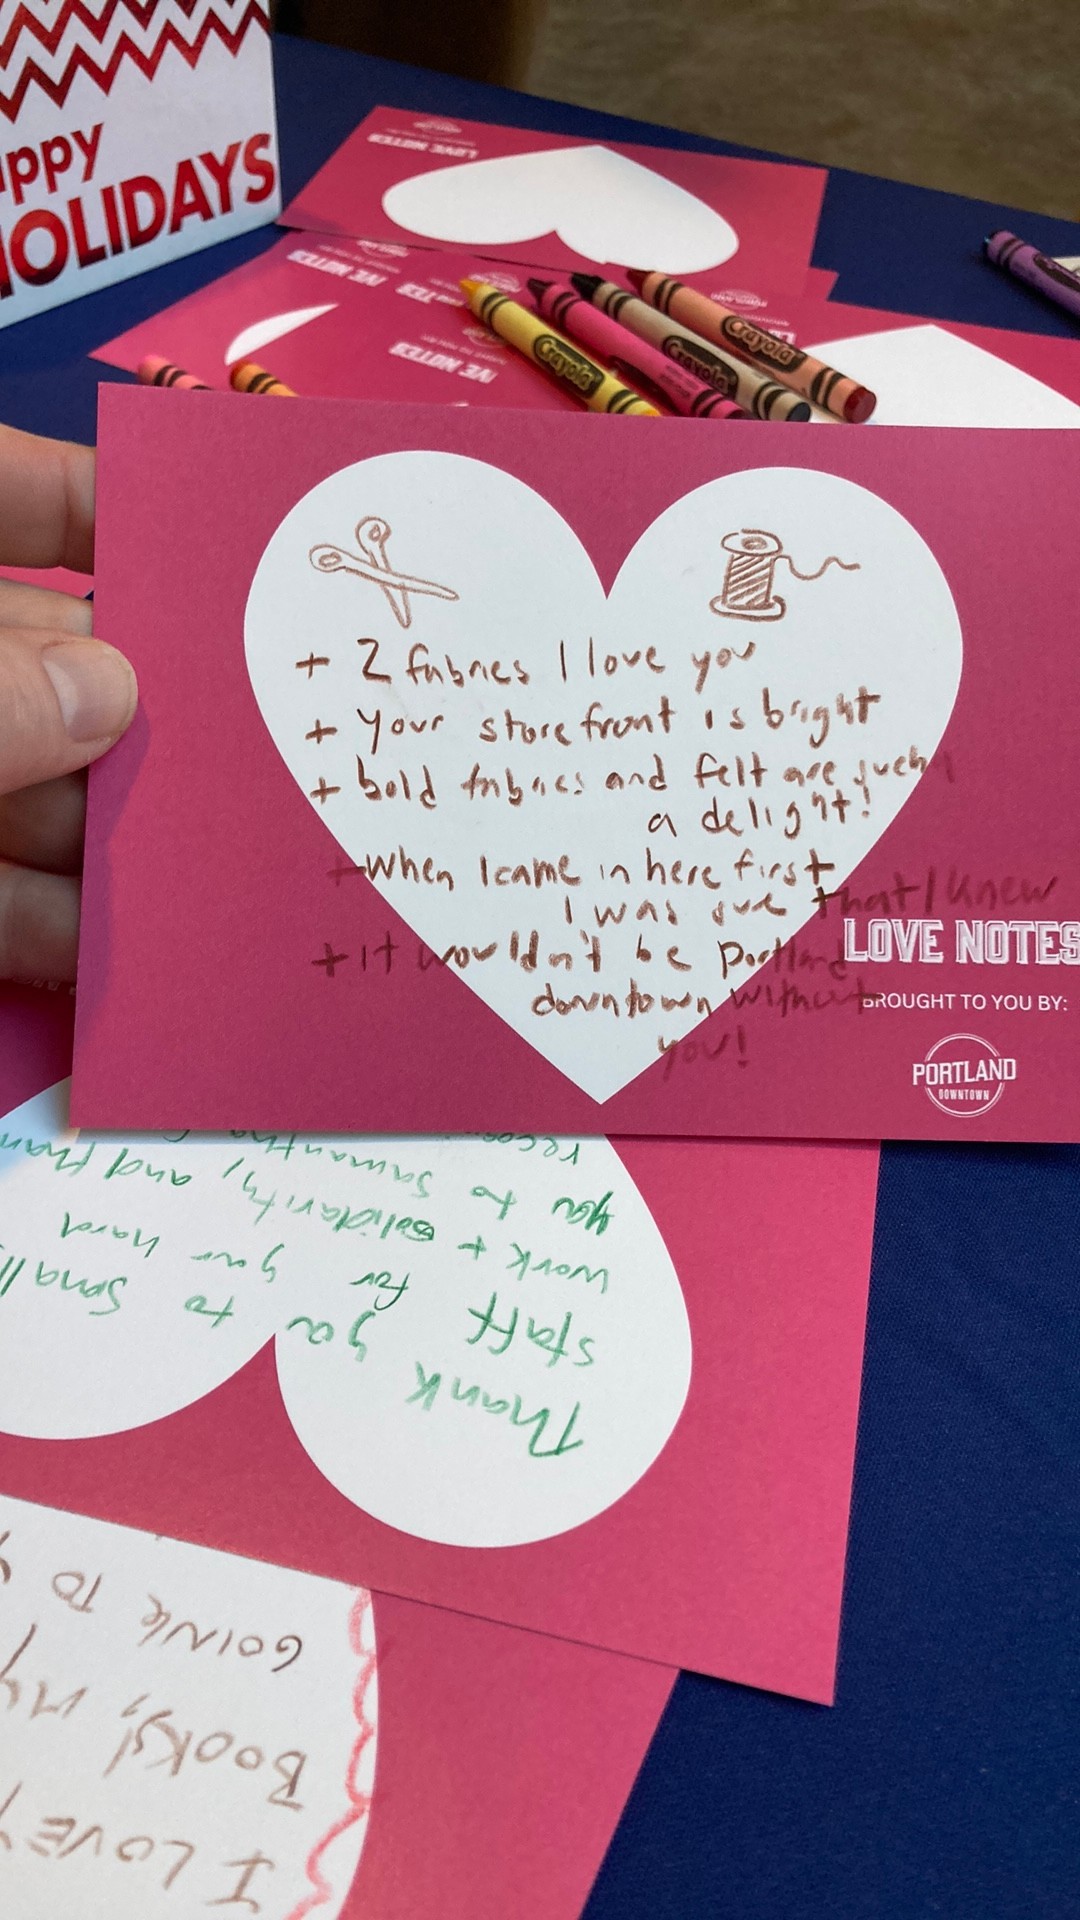 appy
HOLIDAYS
LOVE NOTES
LOVE NOTES
VE NOTES
VE NOTES
Crayola
Crayola
Crayola
+ Z fabrics I love you
+ your storefront is bright
+ bold fabrics and felt are such
a delight!
+ When I came in here first
I was sure that I knew
+ it wouldn't be Portland
downtown without
you!
LOVE NOTES
BROUGHT TO YOU BY:
PORTLAND
DOWNTOWN
Thank ya to Small
staff for your hard
work + solidarity, and than
you to Samantha
I LOVE
Books! my
GOING TO